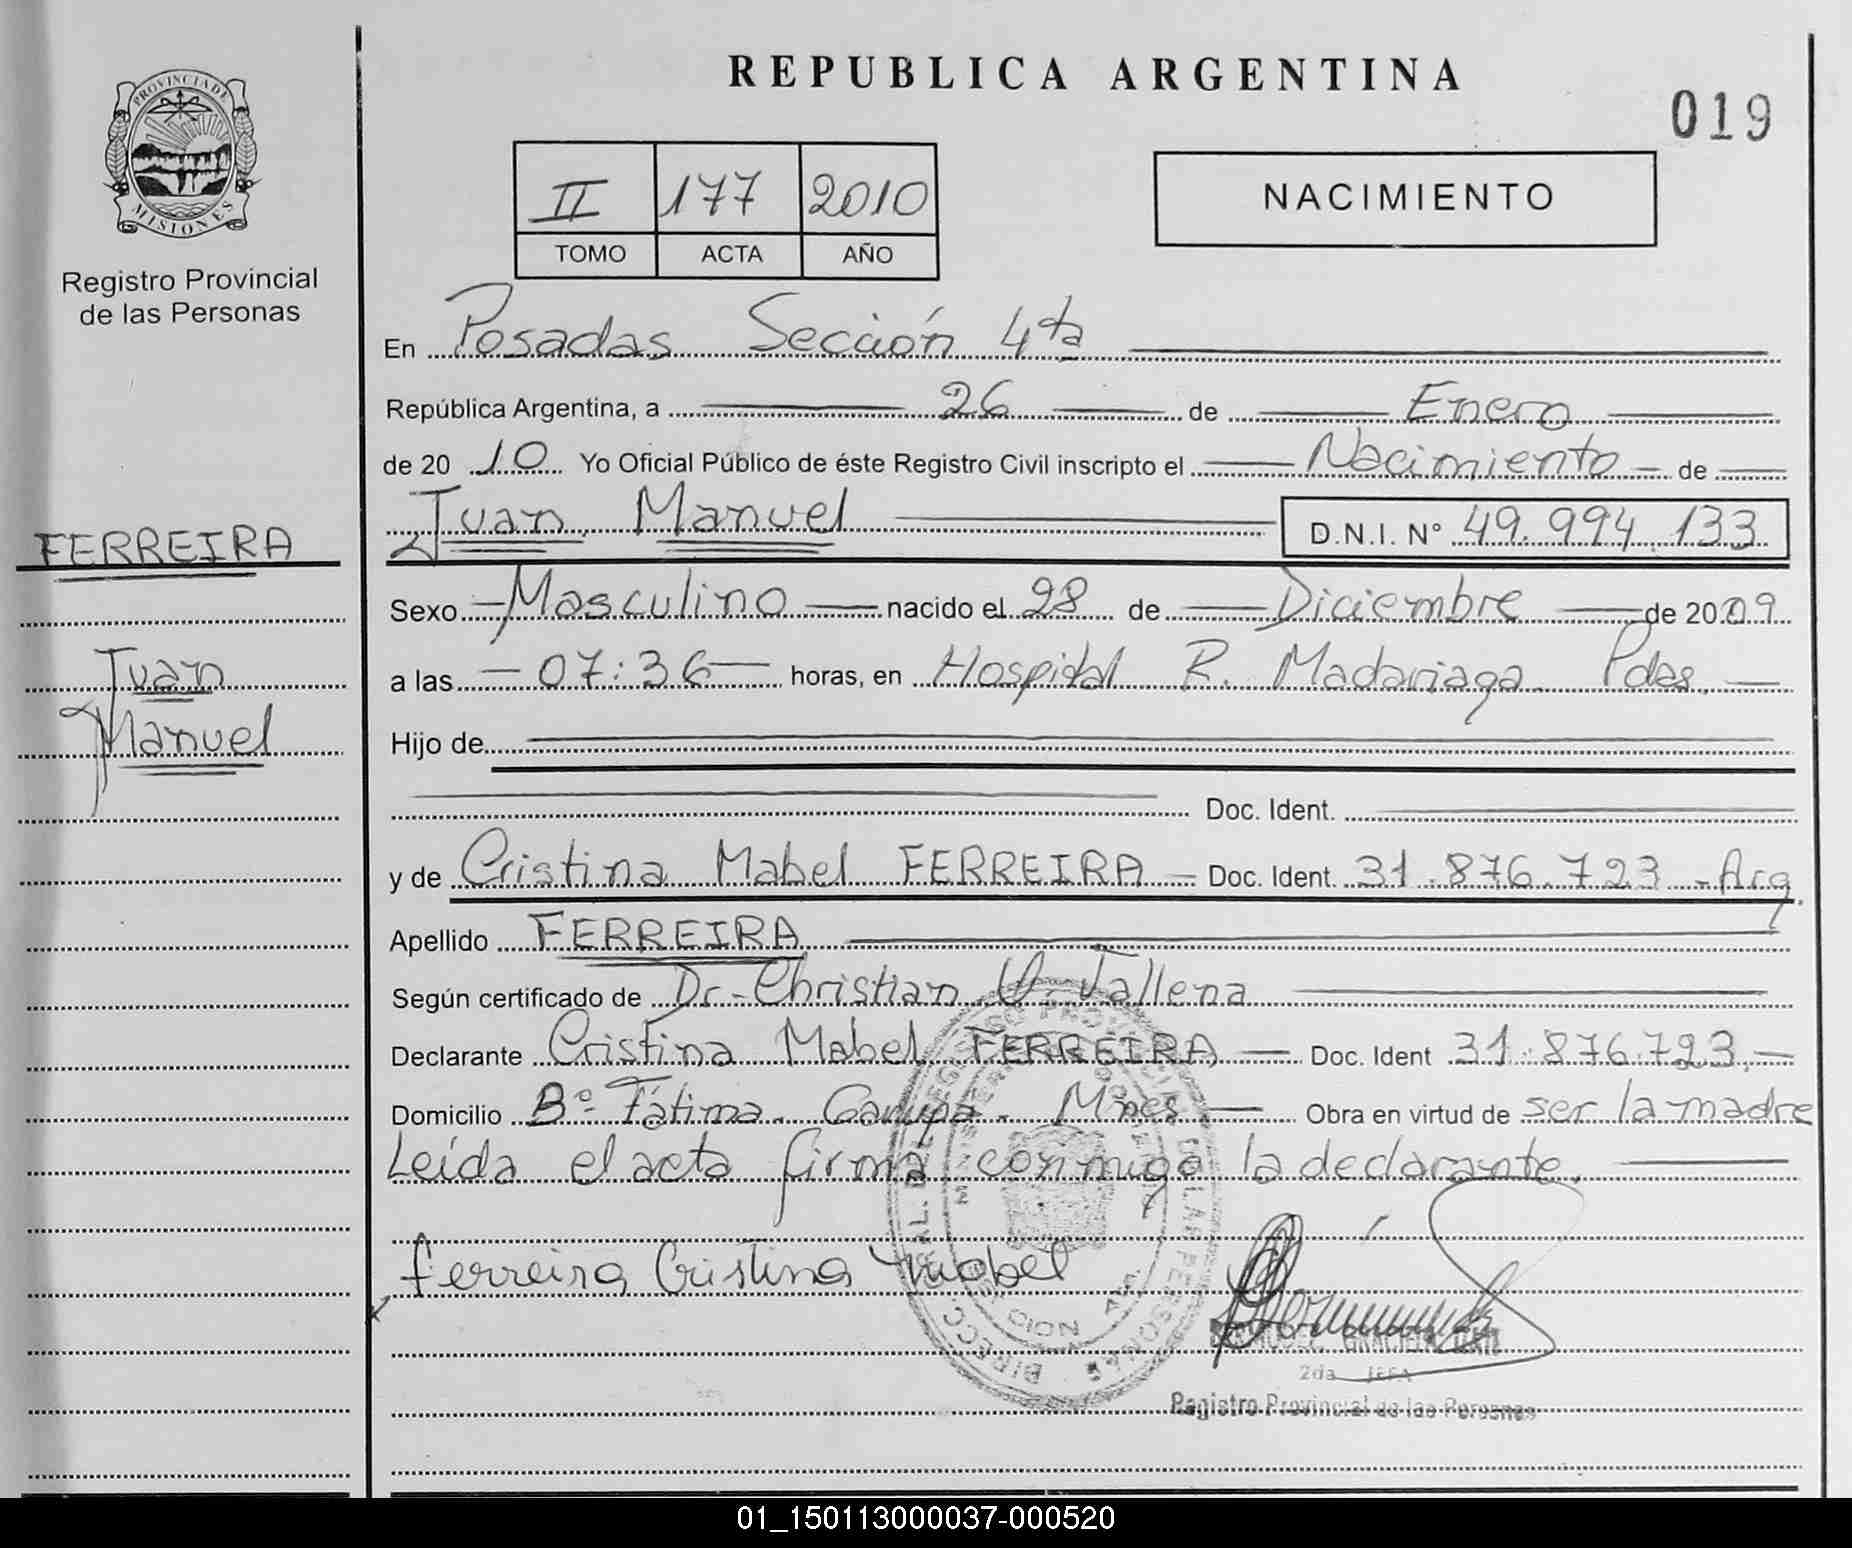 REPUBLICA ARGENTINA
019
PROVINCIA DE
MISIONES
Registro Provincial
de las Personas
II 177 2010
TOMO ACTA AÑO
NACIMIENTO
En Posadas Sección 4ta
República Argentina, a 26 de Enero
de 2010 Yo Oficial Público de éste Registro Civil inscripto el Nacimiento de
Juan Manuel D.N.I. Nº 49.994.133
FERREIRA
Juan
Manuel
Sexo Masculino nacido el 28 de Diciembre de 2009
a las 07:36 horas, en Hospital R. Madariaga Pdas.
Hijo de
Doc. Ident.
y de Cristina Mabel FERREIRA Doc. Ident. 31.876.723 - Arg.
Apellido FERREIRA
Según certificado de Dr. Christian Tallena
Declarante Cristina Mabel FERREIRA Doc. Ident 31.876.723
Domicilio Bº Fátima. Garupá. Mnes Obra en virtud de ser la madre
Leída el acta firma conmigo la declarante.
Ferreira Cristina Mabel
2da JEFA
Registro Provincial de las Personas
01_150113000037-000520